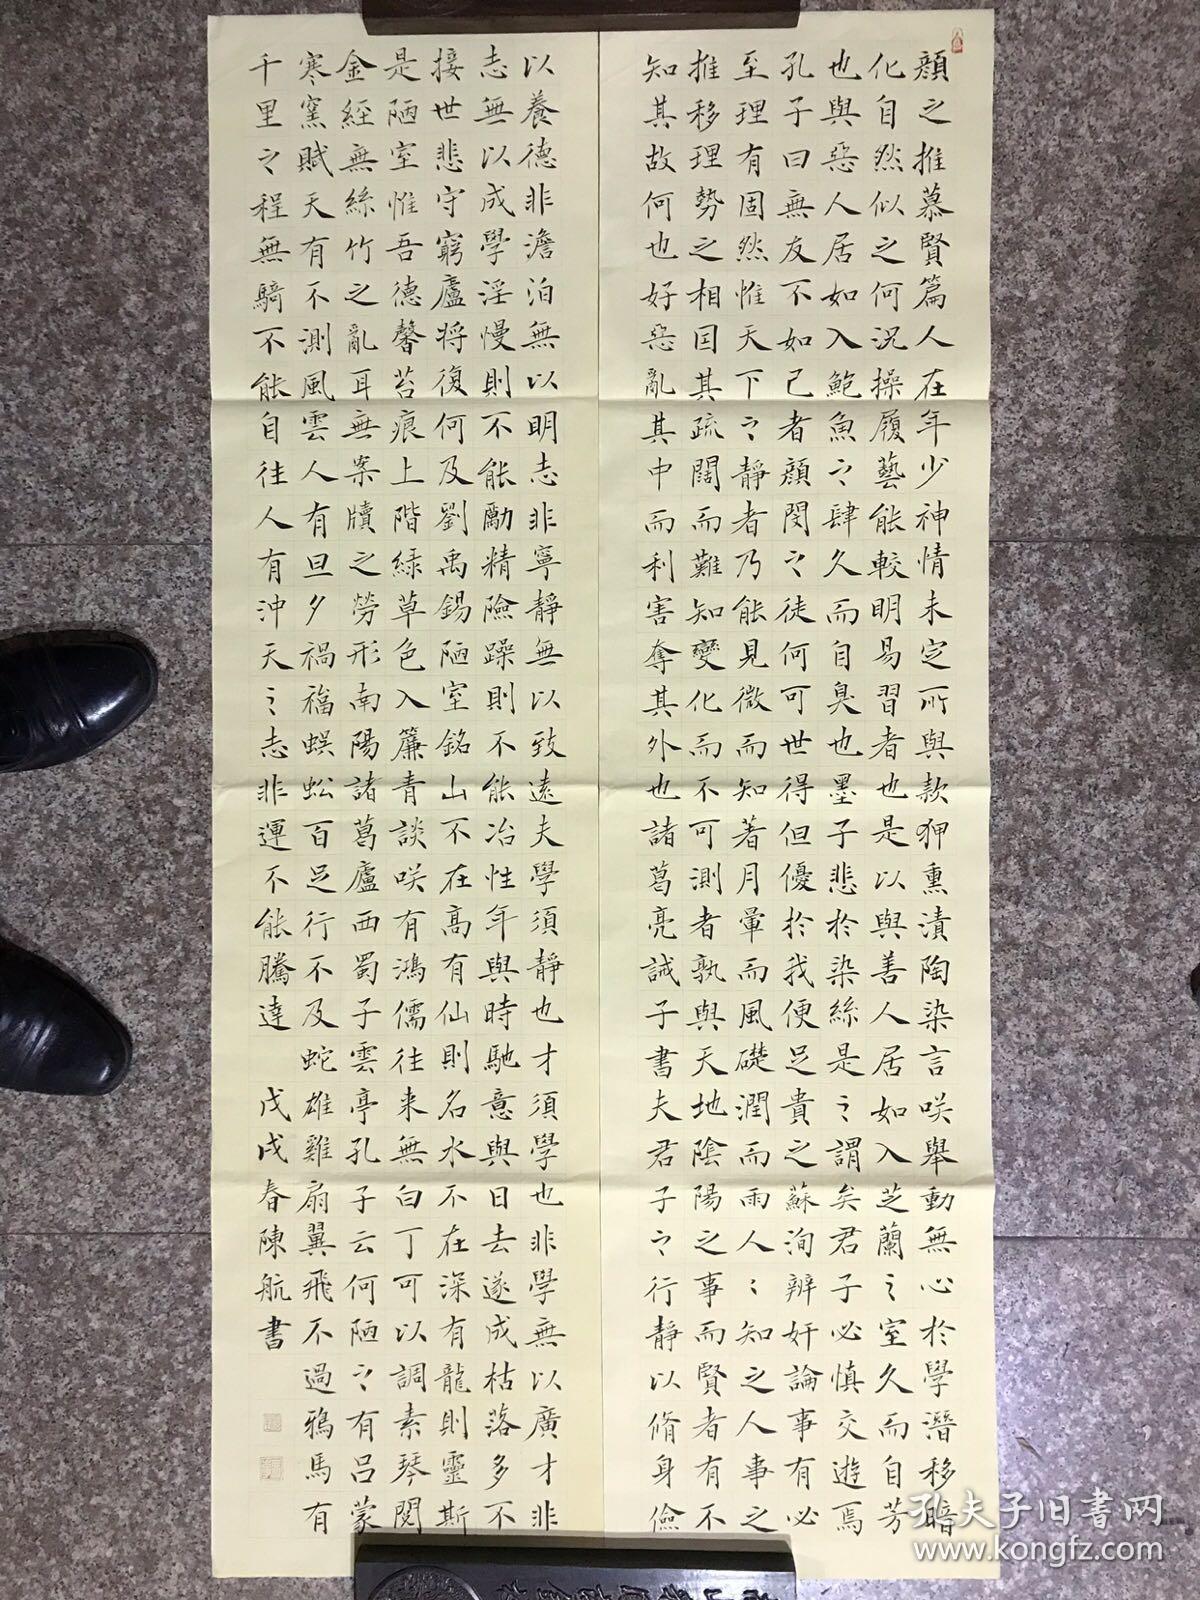 顏之推慕賢篇人在年少神情未定所與款狎熏漬陶染言咲舉動無心於學潛移暗
化自然似之何況操履藝能較明易習者也是以與善人居如入芝蘭之室久而自芳
也與惡人居如入鮑魚之肆久而自臭也墨子悲於染絲是之謂矣君子必慎交遊焉
孔子曰無友不如己者顏閔之徒何可世得但優於我便足貴之蘇洵辨奸論事有必
至理有固然惟天下之靜者乃能見微而知著月暈而風礎潤而雨人〻知之人事之
推移理勢之相因其疏闊而難知變化而不可測者孰與天地陰陽之事而賢者有不
知其故何也好惡亂其中而利害奪其外也諸葛亮誡子書夫君子之行靜以脩身儉
以養德非澹泊無以明志非寧靜無以致遠夫學須靜也才須學也非學無以廣才非
志無以成學淫慢則不能勵精險躁則不能冶性年與時馳意與日去遂成枯落多不
接世悲守窮廬將復何及劉禹錫陋室銘山不在高有仙則名水不在深有龍則靈斯
是陋室惟吾德馨苔痕上階綠草色入簾青談咲有鴻儒往来無白丁可以調素琴閱
金經無絲竹之亂耳無案牘之勞形南陽諸葛廬西蜀子雲亭孔子云何陋之有呂蒙
寒窯賦天有不測風雲人有旦夕禍福蜈蚣百足行不及蛇雄雞扇翼飛不過鴉馬有
千里之程無騎不能自往人有沖天之志非運不能騰達 戊戌春陳航書
孔夫子旧书网
www.kongfz.com